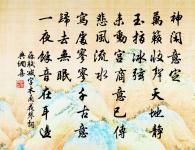 神閒意定
萬籟收聲天地靜
玉指冰弦
未動宮商意已傳
悲風流水
寫出寥寥千古意
歸去無眠
一夜餘音在耳邊
蘇軾減字木蘭花琴